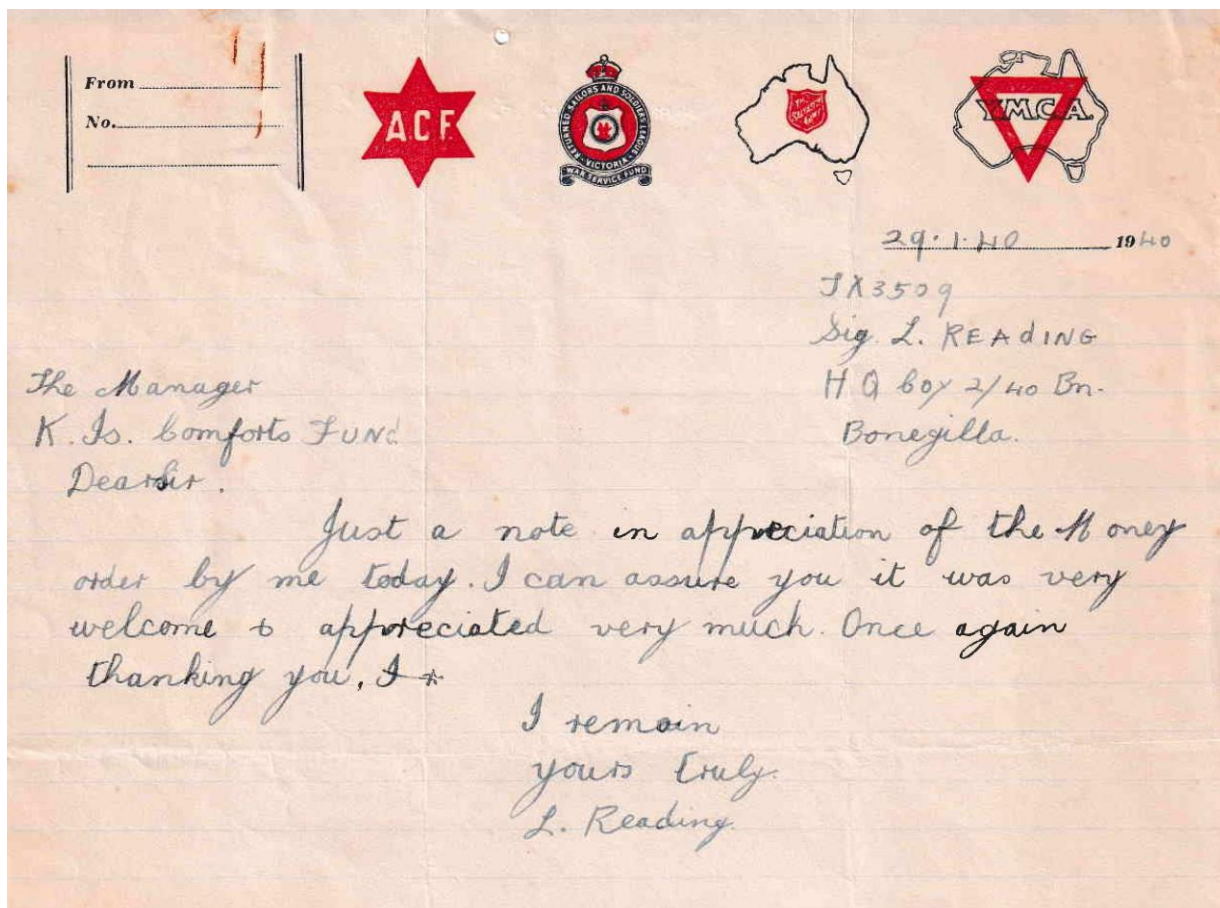 From
No.
A.C.F.
RETURNED SAILORS AND SOLDIERS LEAGUE
VICTORIA
WAR SERVICE FUND
THE SALVATION ARMY
Y.M.C.A.
29.1.40 1940
TX3509
Sig. L. READING
H Q Coy 2/40 Bn.
Bonegilla.
The Manager
K. Is. Comforts FUND
Dear Sir.
Just a note in appreciation of the Money
order by me today. I can assure you it was very
welcome & appreciated very much. Once again
thanking you, I
I remain
yours truly.
L. Reading.